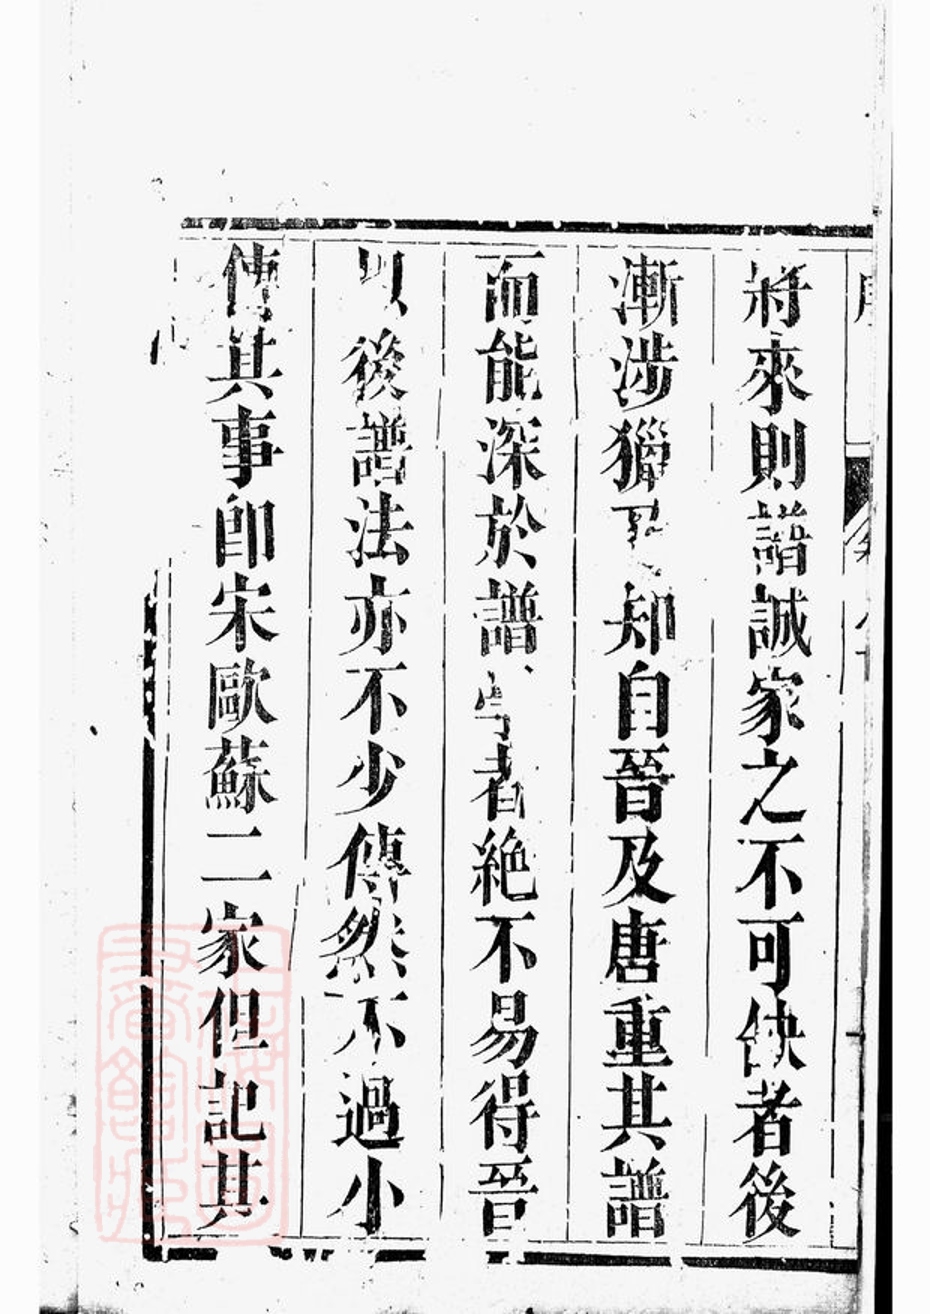 將來則譜誠家之不可缺者後
漸涉獵 知自晉及唐重其譜
而能深於譜學者絶不易得晉
以後譜法亦不少傳然不過小
傳其事卽宋歐蘇二家但記其